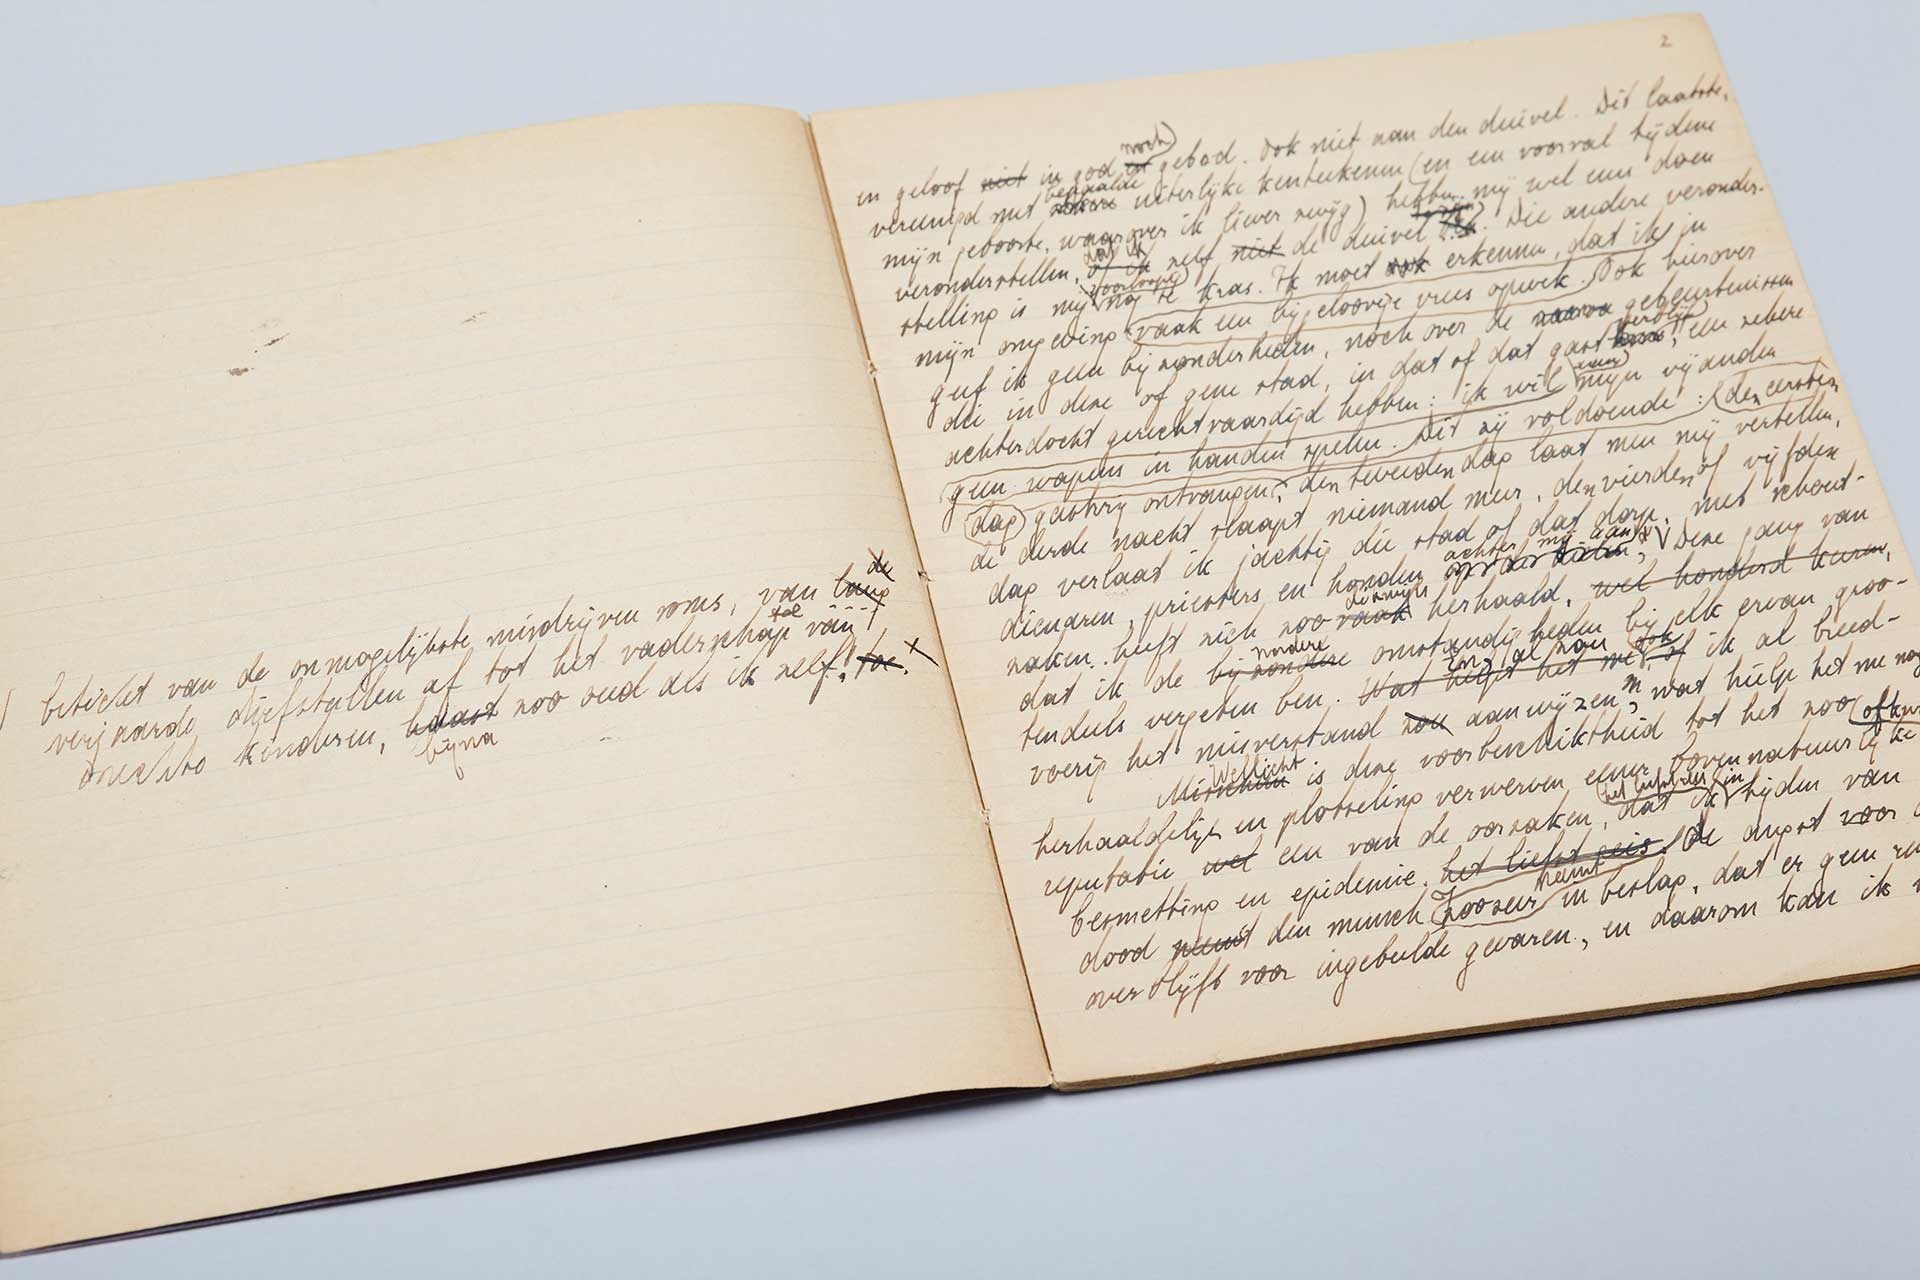 beticht van de onmogelijkste misdrijven soms, van lang de
verjaarde diefstallen af tot het vaderschap toe van !
onechte kinderen, haast zoo oud als ik zelf! toe. x
bijna
2
en geloof niet in god en noch gebod. Ook niet aan den duivel. Dit laatste,
vereenigd met zekere bepaalde uiterlijke kenteekenen (en een voorval tijdens
mijn geboorte, waarover ik liever zwijg) hebben mij wel eens doen
veronderstellen, of ik dat ik zelf niet de duivel was. Die andere veronder-
stelling is mij voorloopig nog te kras. Ik moet ook erkennen, dat ik in
mijn omgeving vaak een bijgeloovige vrees opwek. Ook hierover
geef ik geen bijzonderheden, noch over de gebeurtenissen
die in deze of gene stad, in dat of dat gastverblijf, een zekere
achterdocht gerechtvaardigd hebben: ik wil mijn vijanden
geen wapens in handen spelen. Dit zij voldoende: den eersten
dag gastvrij ontvangen; den tweeden dag laat men mij vertellen,
de derde nacht slaapt niemand meer, den vierden of vijfden
dag verlaat ik jachtig die stad of dat dorp, met schout-
dienaren, priesters en honden achter mij aan x Deze gang van
zaken heeft zich zoo vaak dikwijls herhaald, wel honderd keeren,
dat ik de bijzondere nadere omstandigheden bij elk ervan groo-
tendeels vergeten ben. Wat helpt het met of ik al breed-
voerig het misverstand zou aanwijzen, wat hielp het me nog
Misschien Wellicht is deze voorbeschiktheid tot het zoo of
herhaaldelijk en plotseling verwerven eener bovennatuurlijke
reputatie wel een van de oorzaken, dat ik het in tijden van
besmetting en epidemie het liefst reis. De angst voor
dood neemt den mensch zoozeer neemt in beslag, dat er geen
overblijft voor ingebeelde gevaren, en daarom kan ik